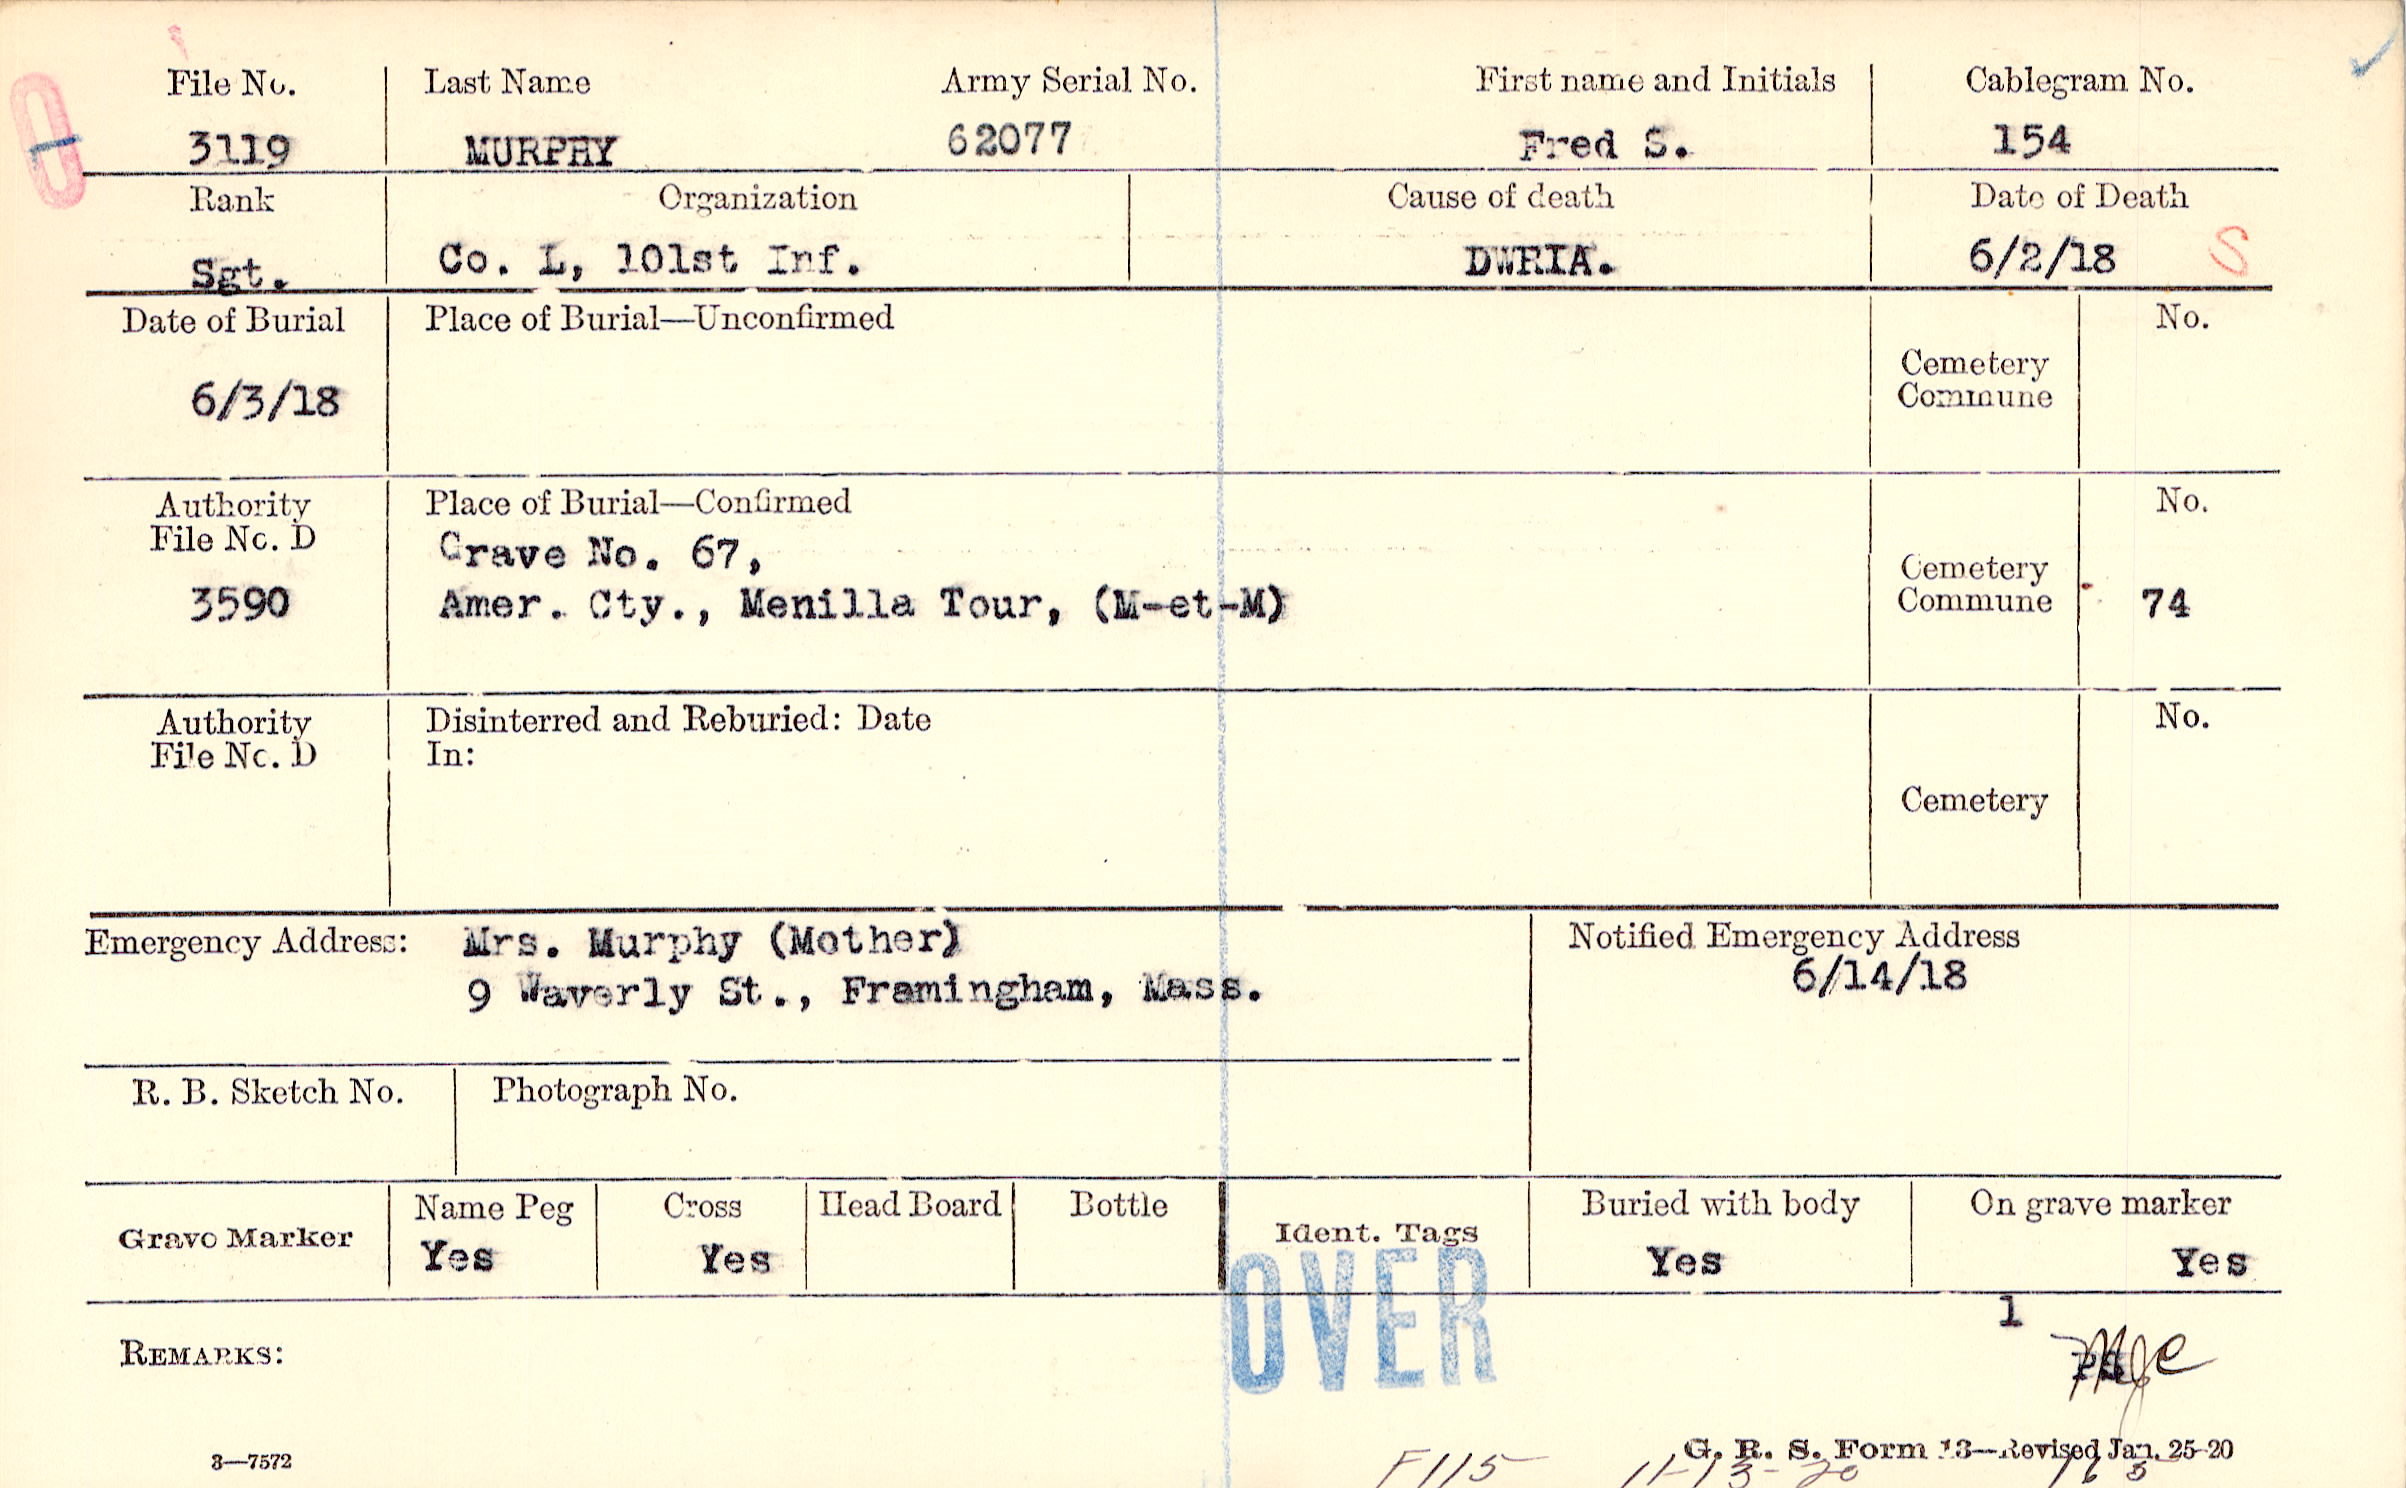 File No. Last Name Army Serial No. First name and Initials Cablegram No.
3119 MURPHY 62077 Fred S. 154
Rank Organization Cause of death Date of Death
Sgt. Co. L, 101st Inf. DWRIA. 6/2/18 S
Date of Burial Place of Burial—Unconfirmed No.
Cemetery
Commune
6/3/18
Authority Place of Burial—Confirmed No.
File No. D
Grave No. 67,
Cemetery
Commune
3590 Amer. Cty., Menilla Tour, (M-et-M) 74
Authority Disinterred and Reburied: Date No.
File No. D In:
Cemetery
Emergency Address: Mrs. Murphy (Mother) Notified Emergency Address
9 Waverly St., Framingham, Mass. 6/14/18
R. B. Sketch No. Photograph No.
Grave Marker Name Peg Cross Head Board Bottle Ident. Tags Buried with body On grave marker
Yes Yes Yes Yes
OVER
1
REMARKS:
3—7572 G. R. S. Form 13—Revised Jan. 25-20
F115 11-13-20